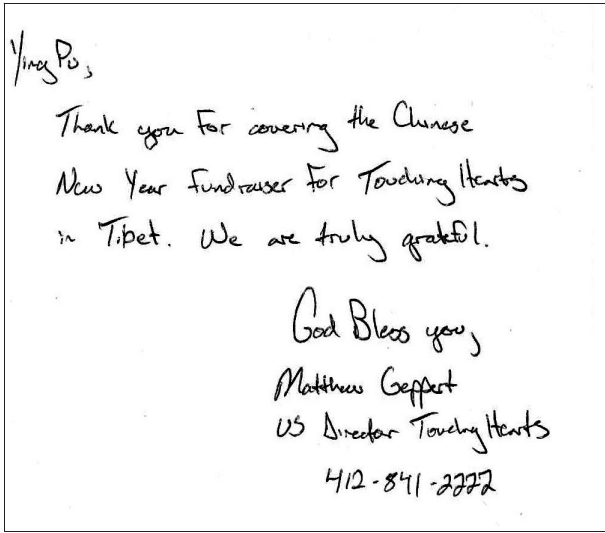 Ying Pu,
Thank you For covering the Chinese
New Year Fundraiser For Touching Hearts
in Tibet. We are truly grateful.
God Bless you,
Matthew Geppert
US Director Touching Hearts
412-841-2222